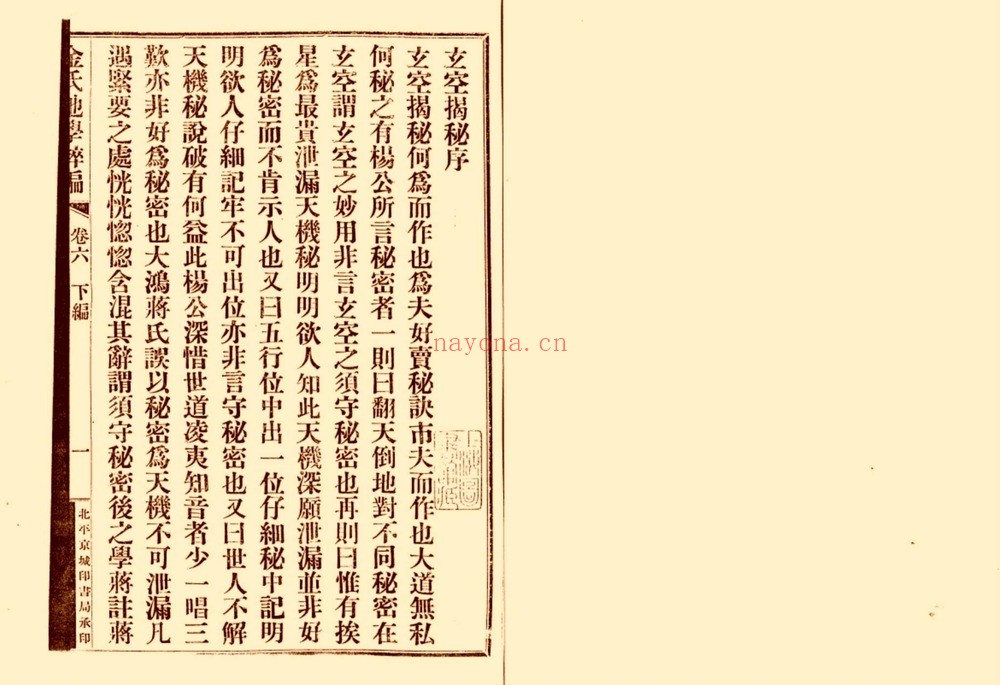 玄空揭秘序
玄空揭秘何爲而作也爲夫好賣秘訣市夫而作也大道無私
何秘之有楊公所言秘密者一則曰翻天倒地對不同秘密在
玄空謂玄空之妙用非言玄空之須守秘密也再則曰惟有挨
星爲最貴泄漏天機秘明明欲人知此天機深願泄漏並非好
爲秘密而不肯示人也又曰五行位中出一位仔細秘中記明
明欲人仔細記牢不可出位亦非言守秘密也又曰世人不解
天機秘說破有何益此楊公深惜世道凌夷知音者少一唱三
歎亦非好爲秘密也大鴻蔣氏誤以秘密爲天機不可泄漏凡
遇緊要之處恍恍惚惚含混其辭謂須守秘密後之學蔣註蔣
金氏地學粹編
卷六 下編
一
北平京城印書局承印
nayona.cn